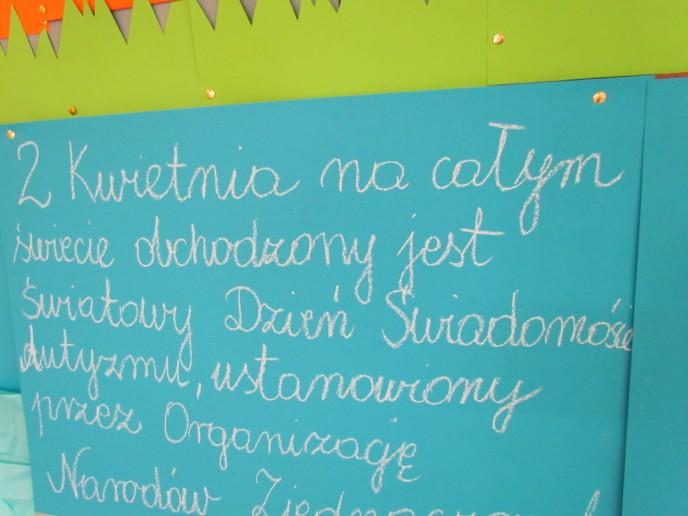 2 Kwietnia na całym
świecie obchodzony jest
Światowy Dzień Świadomości
Autyzmu, ustanowiony
przez Organizację
Narodów